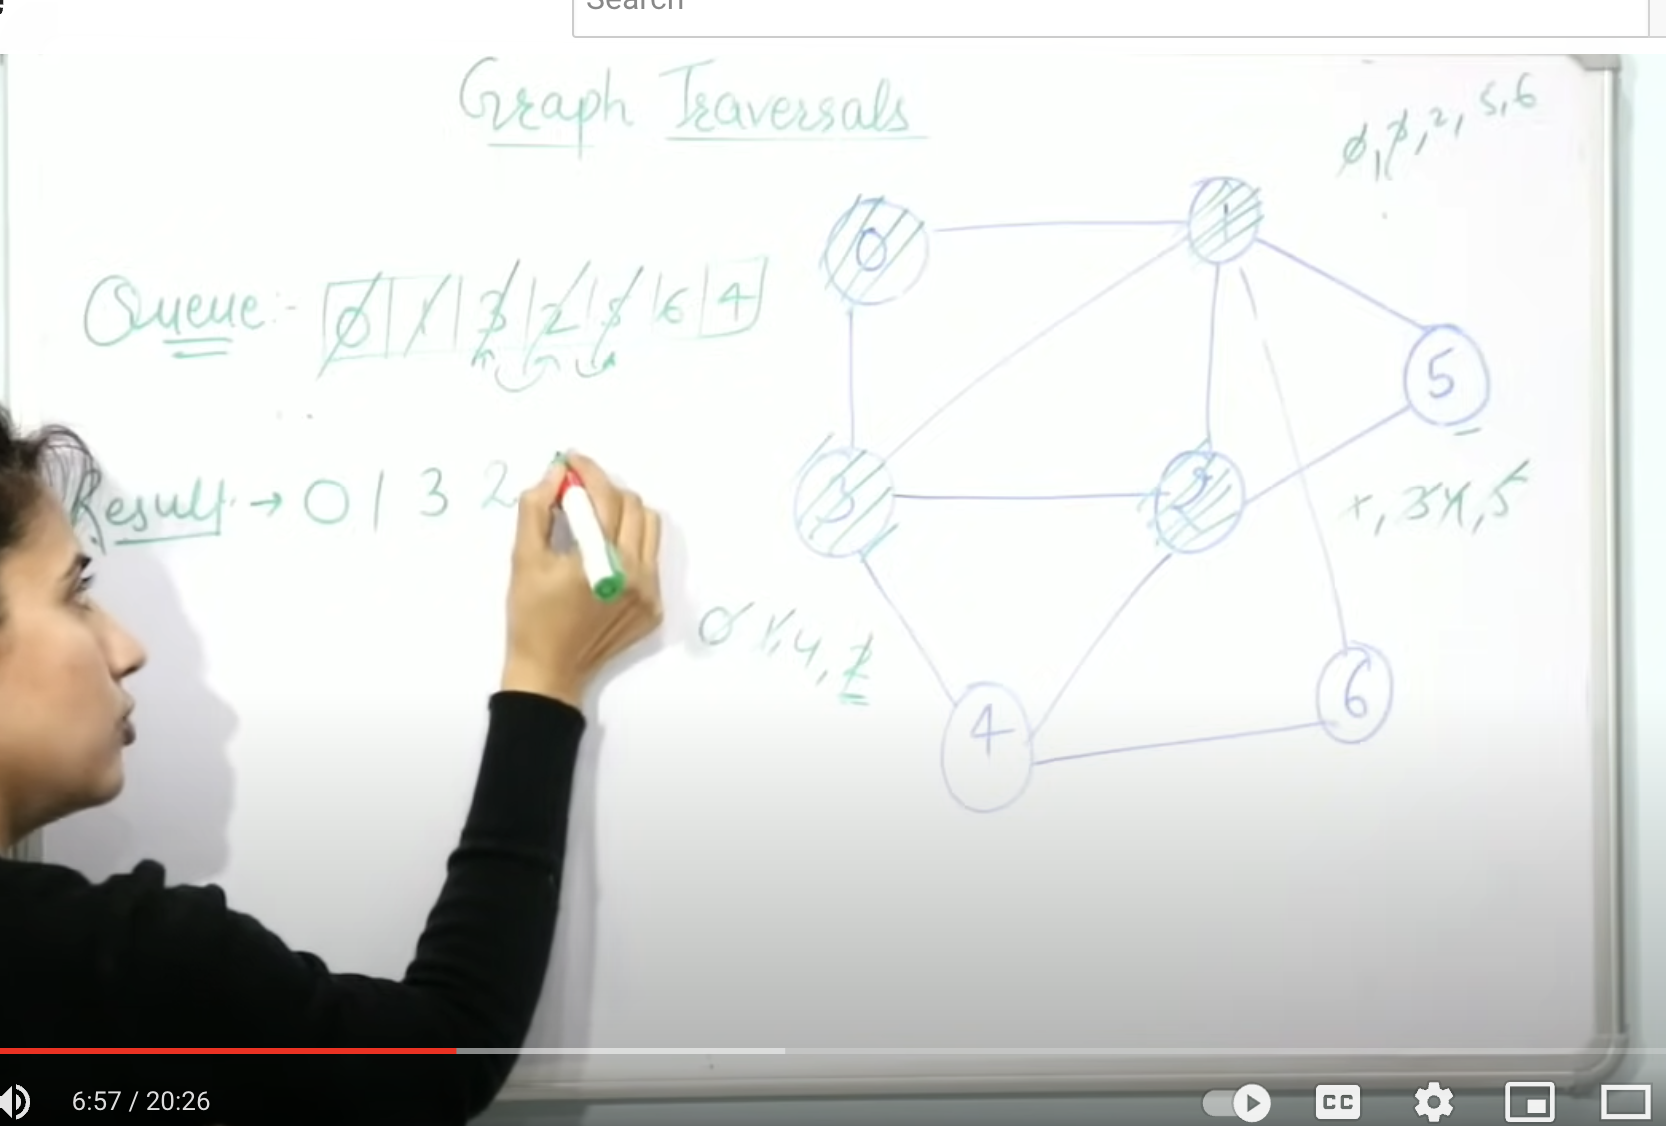 Search
Graph Traversals
0, 3, 2, 5, 6
Queue:- 0 1 3 2 5 6 4
Result → 0 1 3 2
0
1
5
3
2
1, 3 4, 5
0 1, 4, 2
4
6
6:57 / 20:26
CC